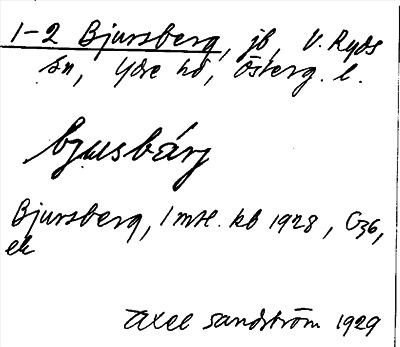 1-2 Bjursberg, jb, V. Ryds
sn, Ydre hd, Österg. l.
bjusbärj
Bjursberg, 1 mtl. kb 1928, G36,
ek
Axel Sandström 1929